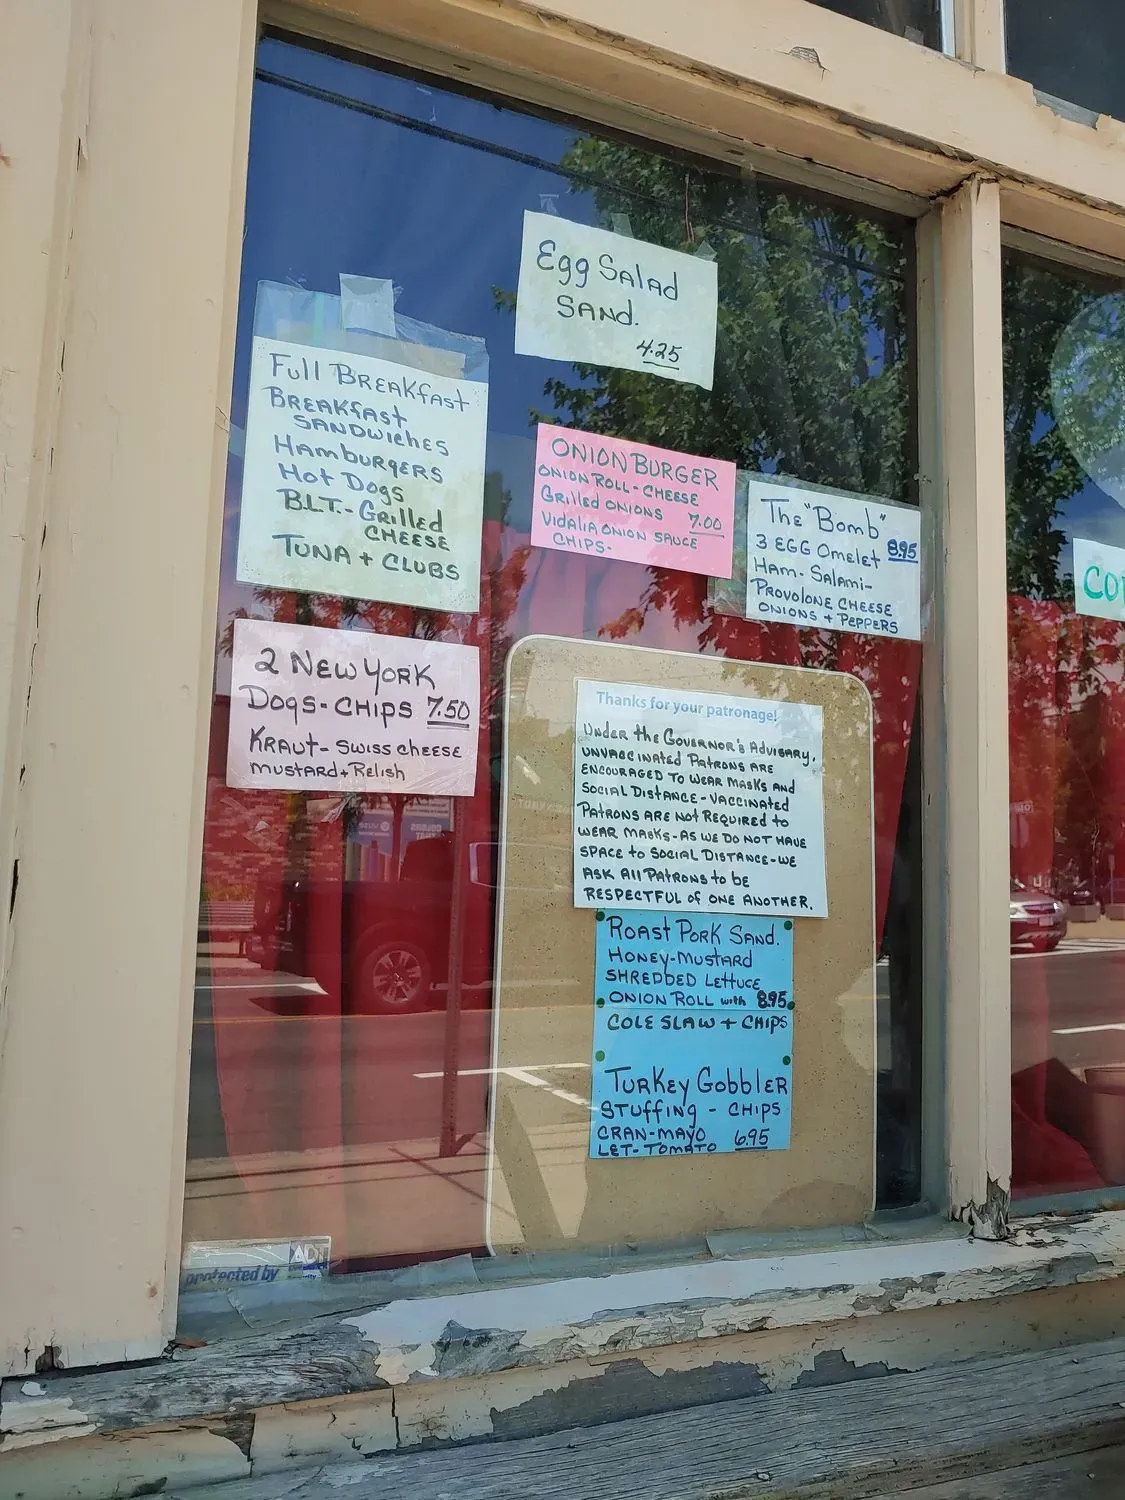 Egg Salad
Sand.
4.25
Full Breakfast
Breakfast
Sandwiches
Hamburgers
Hot Dogs
B.L.T.-Grilled
Cheese
Tuna + Clubs
Onion Burger
Onion Roll-Cheese
Grilled Onions 7.00
Vidalia Onion Sauce
Chips-
The "Bomb"
3 Egg Omelet 8.95
Ham-Salami-
Provolone Cheese
Onions + Peppers
2 New York
Dogs-Chips 7.50
Kraut-Swiss Cheese
Mustard+Relish
Thanks for your patronage!
Under the Governor's Advisary,
unvaccinated Patrons are
encouraged to wear masks and
social distance-vaccinated
Patrons are not required to
wear masks-As we do not have
space to social distance-we
ask all patrons to be
respectful of one another.
Roast Pork Sand.
Honey-Mustard
Shredded Lettuce
Onion Roll with 8.95
Cole Slaw + Chips
Turkey Gobbler
Stuffing - Chips
Cran-Mayo 6.95
Let-Tomato
protected by ADT